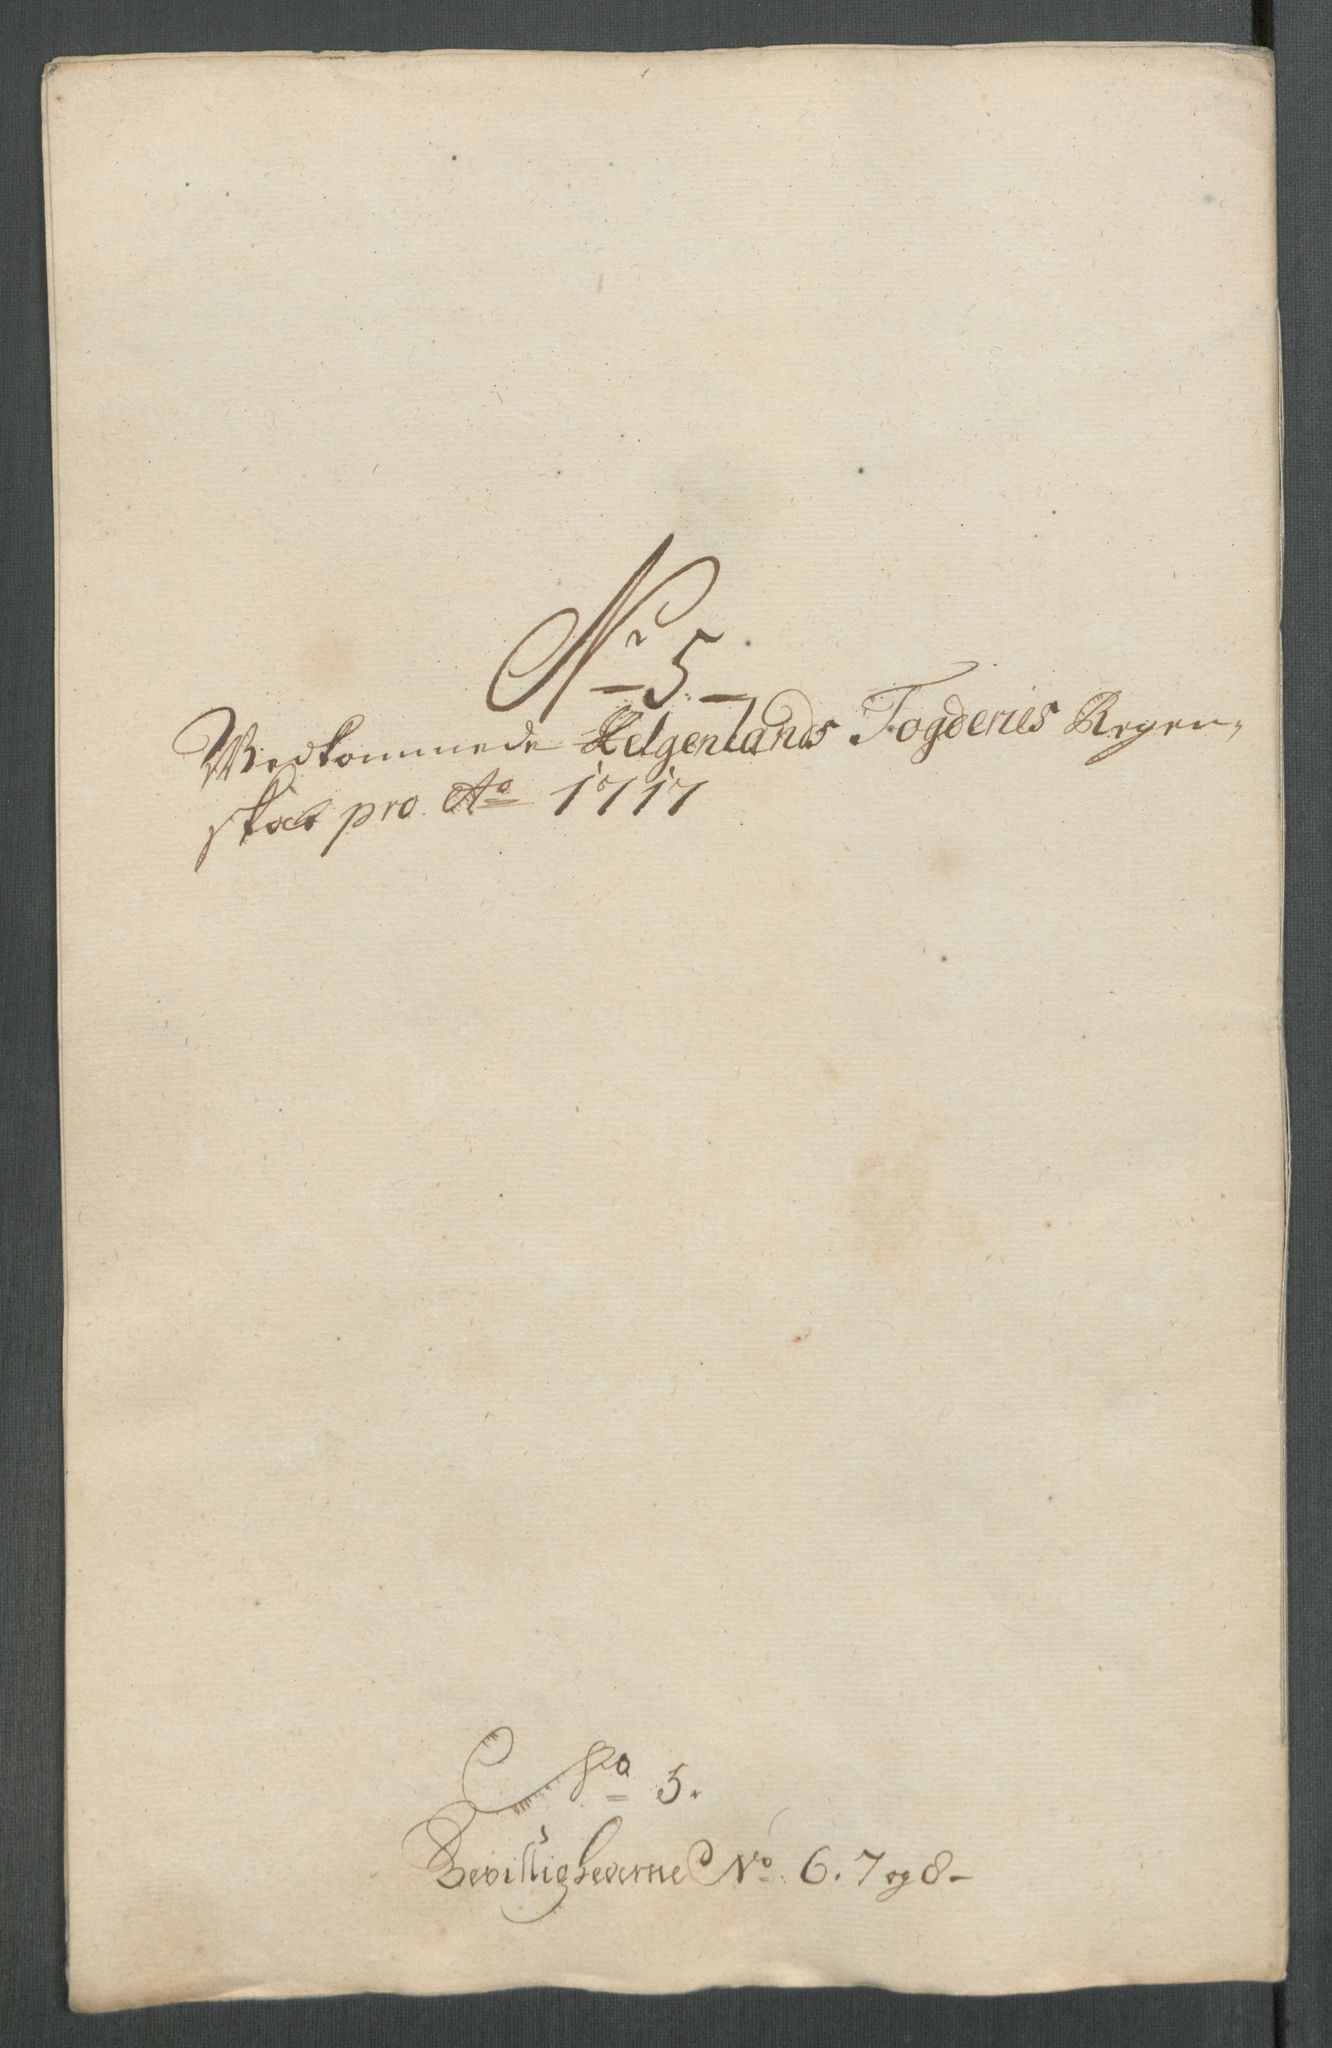 Nr 5
Wedkommede Helgenlands Fogderies Regen-
skab pro Ao 1717
No 5.
Bevillighederne No 6. 7 og 8